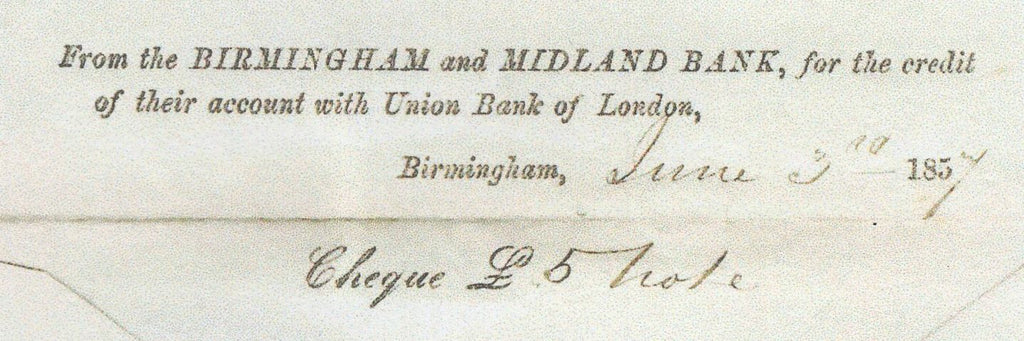 From the BIRMINGHAM and MIDLAND BANK, for the credit
of their account with Union Bank of London,
Birmingham, June 3rd 1857
Cheque £ 5 Note